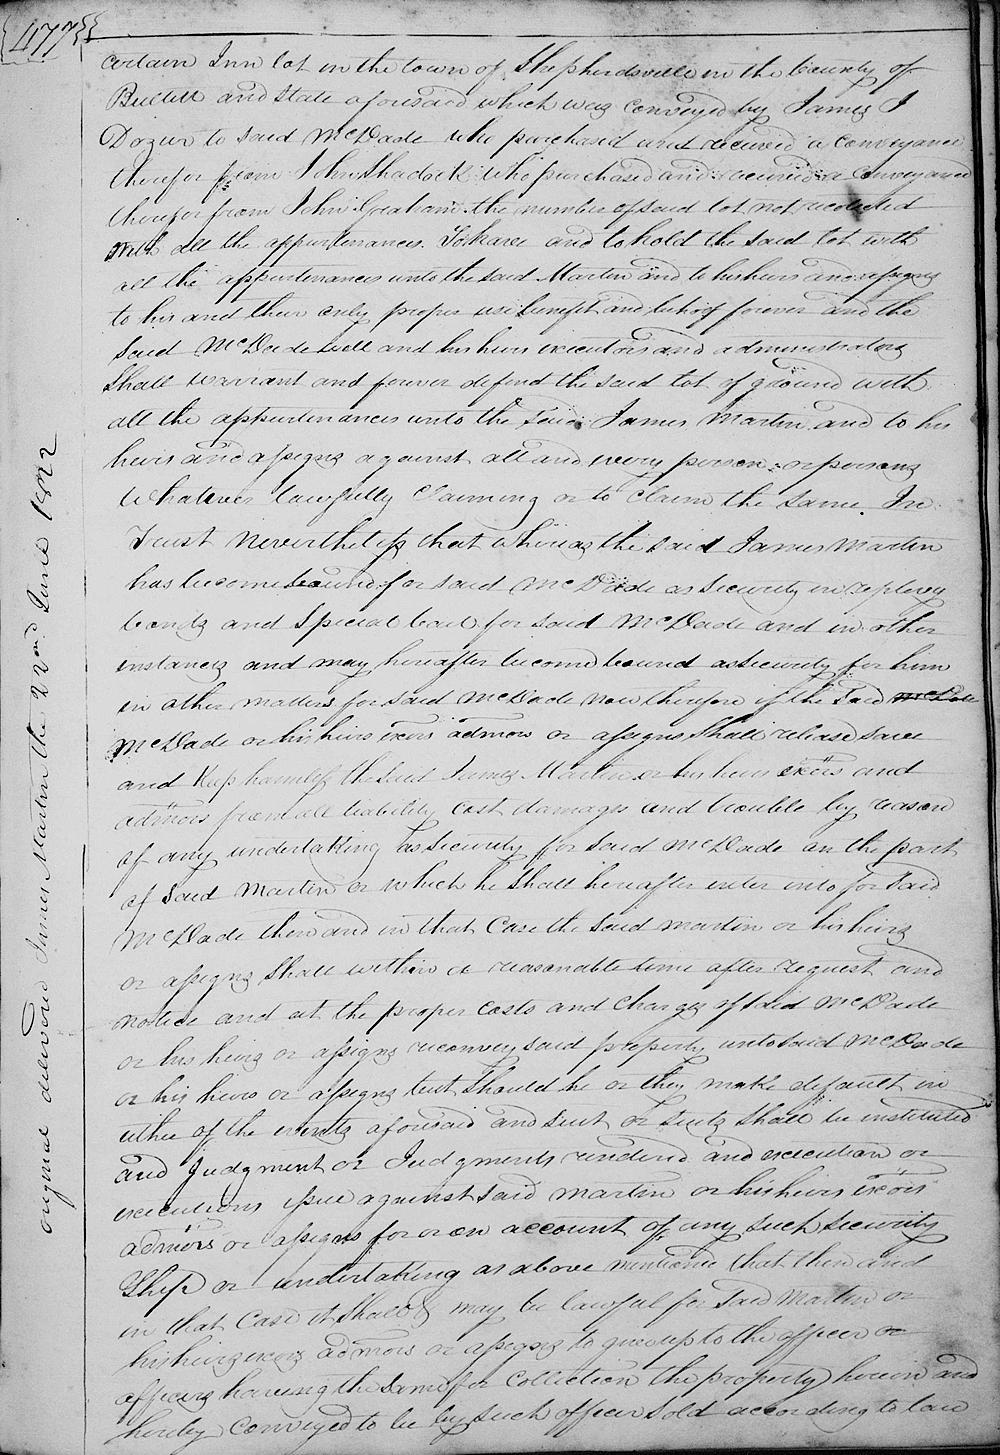 477
certain Inn lot in the town of Shepherdsville in the County of
Bullitt and State aforesaid which was conveyed by James I
Dozier to said McDade who purchased and received a conveyance
therefor from John Shadock who purchased and received a conveyance
therefor from John Graham the number of said lot not recolected
with all the appurtenances To have and to hold the said lot with
all the appurtenances unto the said Martin and to his heirs and assigns
to his and their only proper use benefit and behoof forever and the
said McDade will and his heirs executors and administrators
Shall warrant and forever defend the said lot of ground with
all the appurtenances unto the said James Martin and to his
heirs and assigns against all and every person or persons
Whatever lawfully Claiming or to Claim the same. In
Trust Nevertheless that whereas the said James Martin
has become bound for said McDade as Security in replevy
bonds and Special bail for said McDade and in other
instances and may hereafter become bound as Security for him
in other matters for said McDade now therefore if the said McDade
McDade or his heirs exors admors or assigns Shall release save
and Keep harmless the said James Martin or his heirs exors and
admors from all liability cost damages and trouble by reason
of any undertaking as Security for said McDade on the part
of Said Martin or which he Shall hereafter enter into for said
McDade then and in that Case the said martin or his heirs
or assigns Shall within a reasonable time after request and
notice and at the proper costs and Charges of said McDade
or his heirs or assigns reconvey said property unto said McDade
or his heirs or assigns but Should he or they make default in
either of the events aforesaid and suit or suits Shall be instituted
and Judgment or Judgments rendered and execution or
executions issue against said martin or his heirs exors
admors or assigns for or on account of any such security
Ship or undertaking as above mentioned that then and
in that Case it Shall & may be lawful for said Martin or
his heirs exors admors or assigns to give up to the officer or
officers having the same for Collection the property herein and
hereby Conveyed to be by such officer sold according to law
original delivered James Martin the 22nd June 1822